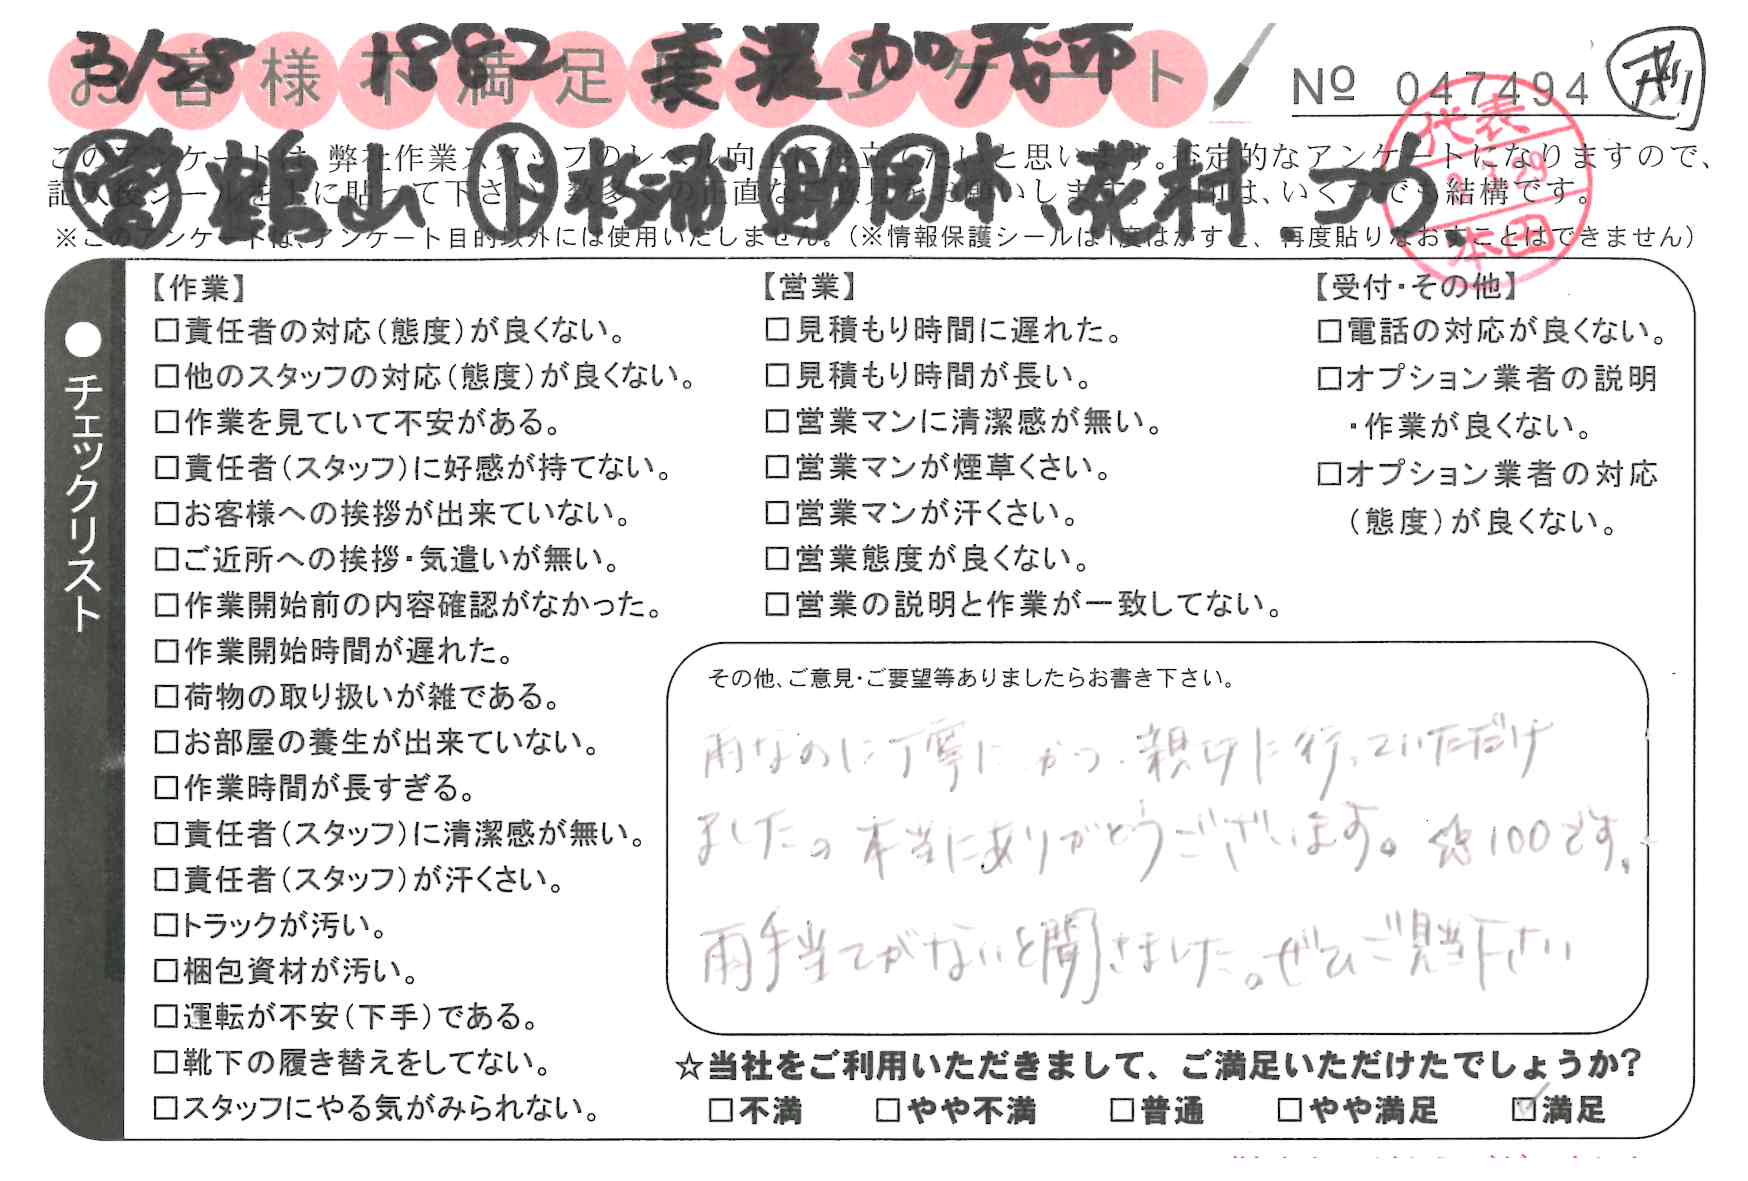 3/28 1882 美濃加茂市
お客様不満足度アンケート
No 047494
営 鶴山 ト 杉浦 助 岡本、花村
代表
本田
このアンケートは、弊社作業スタッフのレベル向上に役立てたいと思います。否定的なアンケートになりますので、
記入後シールを上に貼って下さい。数多くの正直なご意見をお願いします。は、いくつでも結構です。
※このアンケートは、アンケート目的以外には使用いたしません。(※情報保護シールは1度はがすと、再度貼りなおすことはできません)
●チェックリスト
【作業】
□責任者の対応(態度)が良くない。
□他のスタッフの対応(態度)が良くない。
□作業を見ていて不安がある。
□責任者(スタッフ)に好感が持てない。
□お客様への挨拶が出来ていない。
□ご近所への挨拶・気遣いが無い。
□作業開始前の内容確認がなかった。
□作業開始時間が遅れた。
□荷物の取り扱いが雑である。
□お部屋の養生が出来ていない。
□作業時間が長すぎる。
□責任者(スタッフ)に清潔感が無い。
□責任者(スタッフ)が汗くさい。
□トラックが汚い。
□梱包資材が汚い。
□運転が不安(下手)である。
□靴下の履き替えをしてない。
□スタッフにやる気がみられない。
【営業】
□見積もり時間に遅れた。
□見積もり時間が長い。
□営業マンに清潔感が無い。
□営業マンが煙草くさい。
□営業マンが汗くさい。
□営業態度が良くない。
□営業の説明と作業が一致してない。
【受付・その他】
□電話の対応が良くない。
□オプション業者の説明
・作業が良くない。
□オプション業者の対応
(態度)が良くない。
その他、ご意見・ご要望等ありましたらお書き下さい。
雨なのに丁寧に かつ、親切に行っていただけ
ました。本当にありがとうございます。☆100です。
雨手当てがないと聞きました。ぜひご手当下さい
☆当社をご利用いただきまして、ご満足いただけたでしょうか?
□不満 □やや不満 □普通 □やや満足 ☑満足